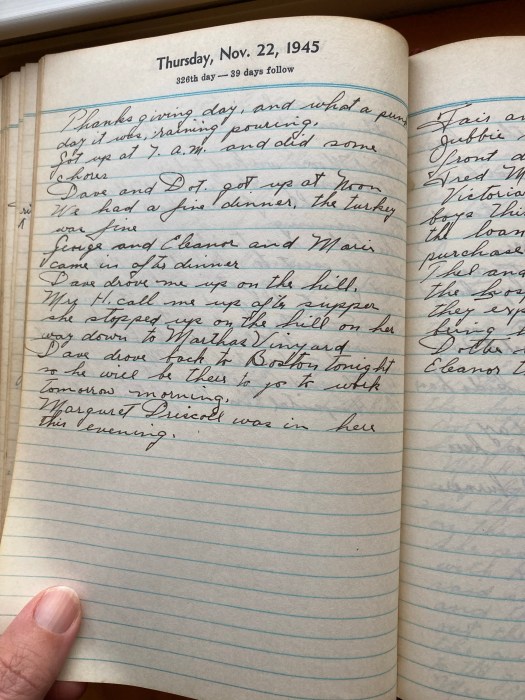 Thursday, Nov. 22, 1945
326th day — 39 days follow
Thanks giving day, and what a
day it was, raining pouring.
Got up at 7. A.M. and did some
chores
Dave and Dot. got up at Noon
We had a fine dinner, the turkey
was fine
George and Eleanor and Marie
came in after dinner
Dave drove me up on the hill.
Mrs H. call me up after supper
she stopped up on the hill on her
way down to Marthas Vinyard
Dave drove back to Boston tonight
so he will be their to go to work
tomorrow morning.
Margaret Driscoll was in here
this evening.
Fair
front
Fred
Victoria
boys
the loan
purchase
and
the
they
being
Eleanor